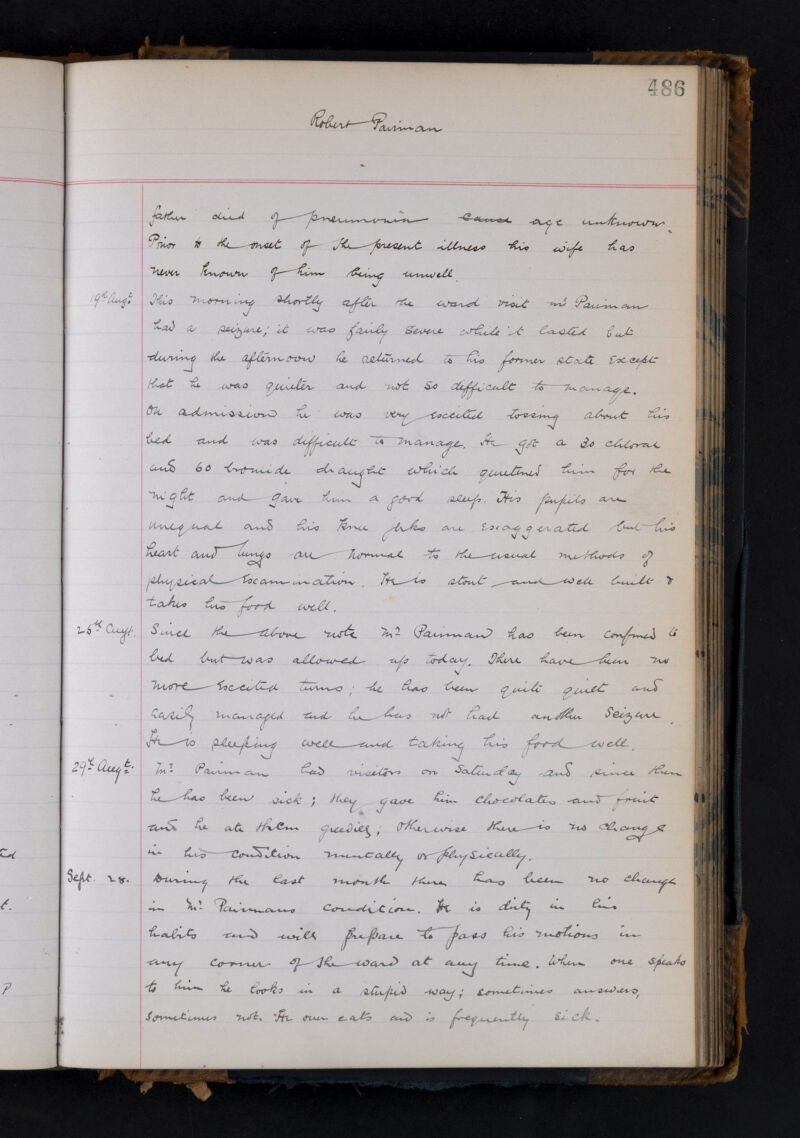 486
Robert Pairman
father died of pneumonia cause age unknown.
Prior to the onset of the present illness his wife has
never known of him being unwell.
19th Augt. This morning shortly after the ward visit Mr Pairman
had a seizure; it was fairly severe while it lasted but
during the afternoon he returned to his former state except
that he was quieter and not so difficult to manage.
On admission he was very excited tossing about his
bed and was difficult to manage. He got a 30 chloral
and 60 bromide draught which quietened him for the
night and gave him a good sleep. His pupils are
unequal and his knee jerks are exaggerated but his
heart and lungs are normal to the usual methods of
physical examination. He is stout and well built &
takes his food well.
25th Augt. Since the above note Mr Pairman has been confined to
bed but was allowed up today. There have been no
more excited turns; he has been quite quiet and
easily managed and he has not had another seizure.
He is sleeping well and taking his food well.
29th Augt. Mr Pairman had visitors on Saturday and since then
he has been sick; they gave him chocolates and fruit
and he ate them greedily; otherwise there is no change
in his condition mentally or physically.
Sept. 28. During the last month there has been no change
in Mr Pairmans condition. He is dirty in his
habits and will prepare to pass his motions in
any corner of the ward at any time. When one speaks
to him he looks in a stupid way; sometimes answers,
sometimes not. He over eats and is frequently sick.